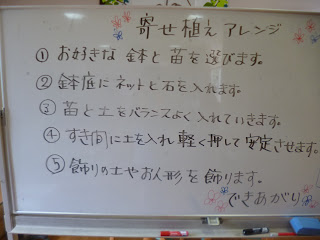 寄せ植えアレンジ
① お好きな鉢と苗を選びます。
② 鉢底にネットと石を入れます。
③ 苗と土をバランスよく入れていきます。
④ すき間に土を入れ軽く押して安定させます。
⑤ 飾りの土やお人形を飾ります。
できあがり